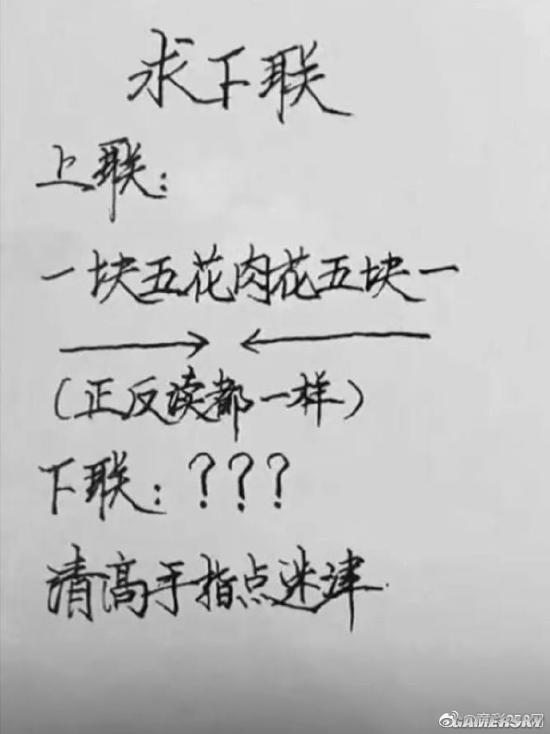 求下联
上联：
一块五花肉花五块一
（正反读都一样）
下联：？？？
请高手指点迷津
GAMERSKY